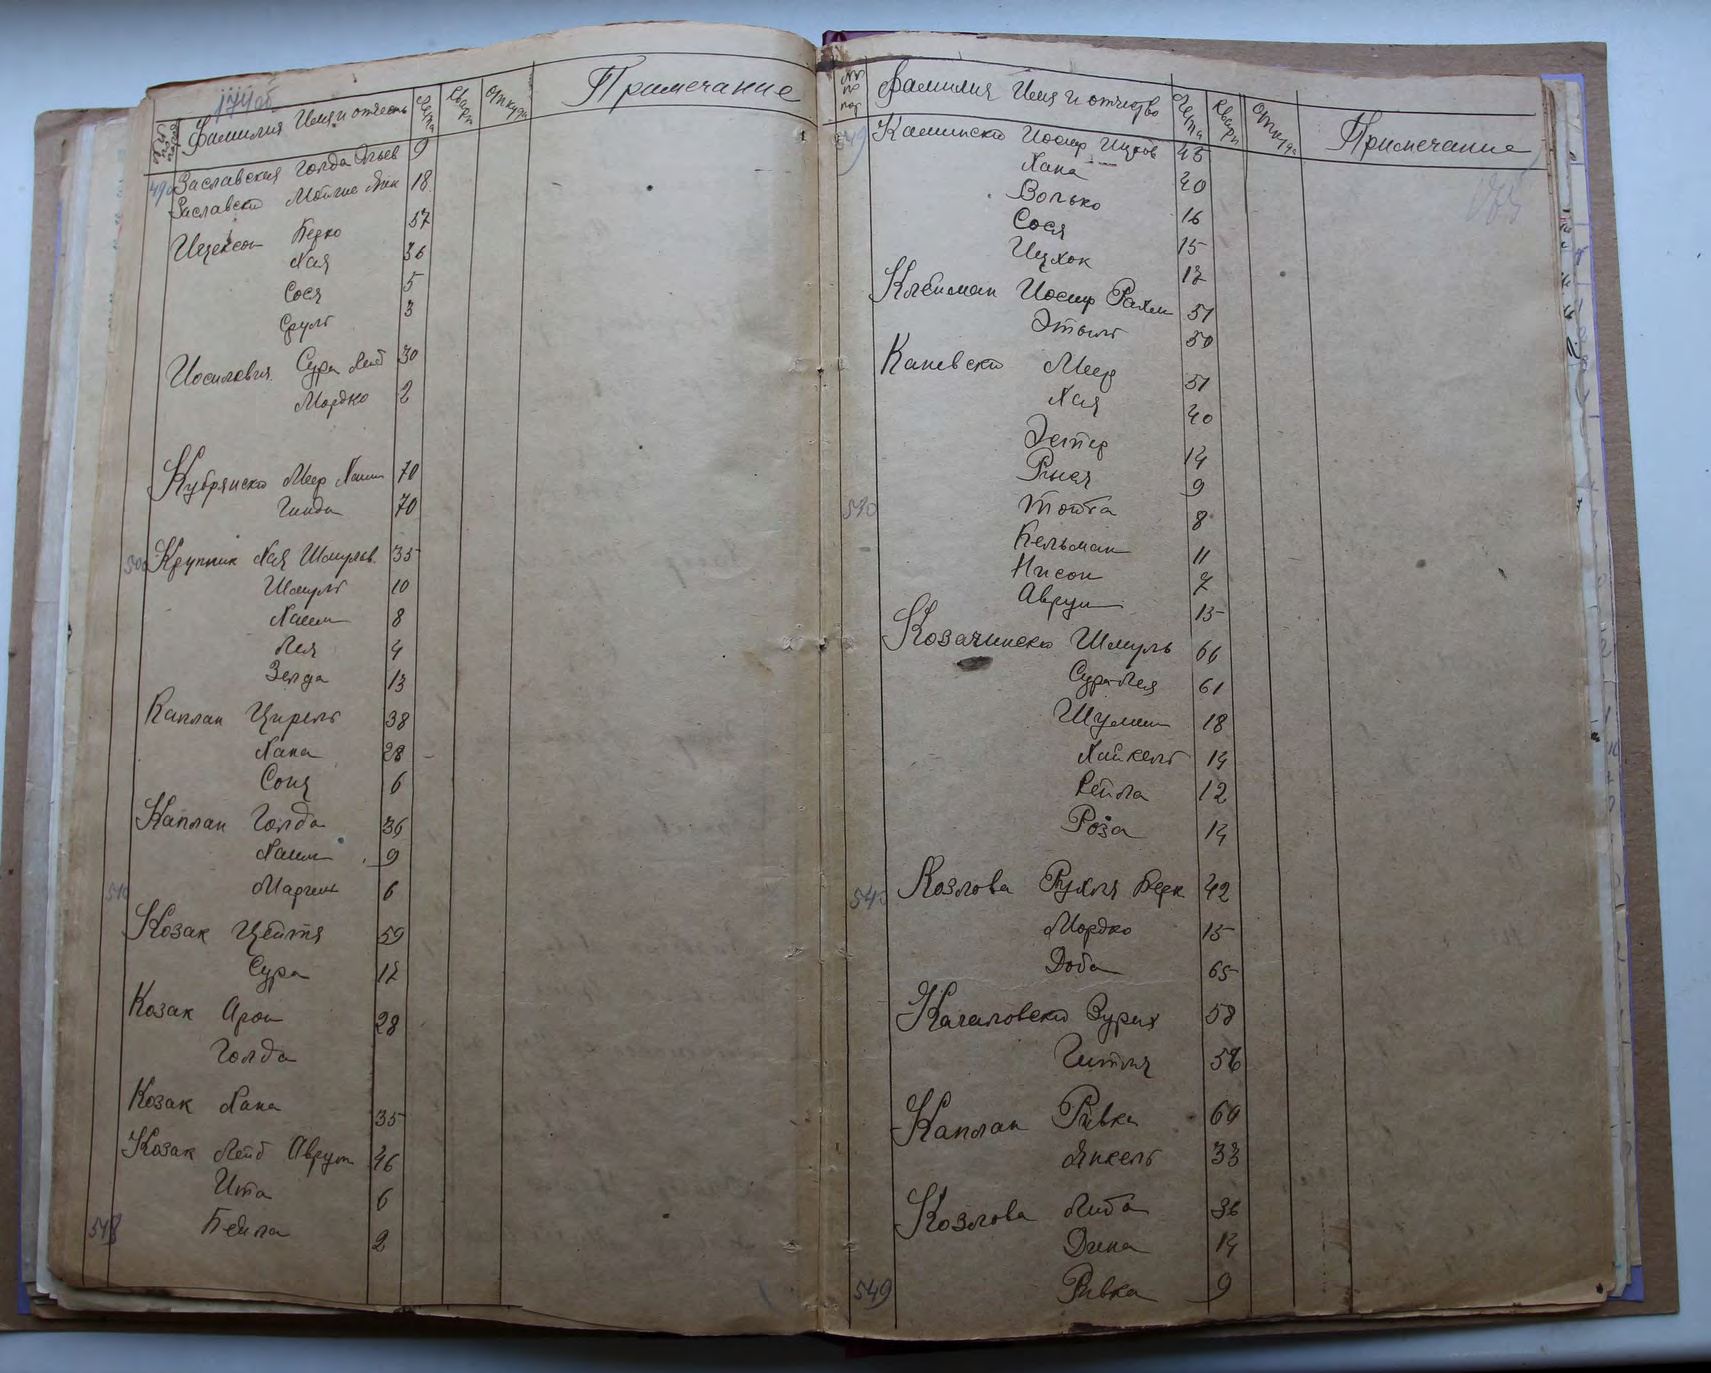 174об
№ по пор Фамилия Имя и отчеств Лета Кварт Откуда Примечание
490 Заславская Голда Ольев 9
Заславски 18
Ицексон Берко 57
Хая 36
Сося 5
Сруль 3
Иосилевич Сура Лейб 30
Мордко 2
Кубрянски Меер Хаим 70
Гинда 70
500 Крупник Хая Шмулев. 35
Шмуль 10
Хаим 8
Лея 4
Зелда 13
Каплан Цирель 38
Хана 28
Соня 6
Каплан Голда 36
Хаим 9
510 6
Козак Цейтя 59
Сура 12
Козак Арон 28
Голда
Козак Хана 35
Козак Лейб Аврум 46
Ита 6
518 Бейла 2
№№ по пор Фамилия Имя и отчество Лета Кварт Откуда Примечание
519 Камински Иосиф Ицков 45
175
Хана 40
Волько 16
Сося 15
Ицхок 12
Клейман Иосиф Рахм 51
Этыль 50
Каневски Меер 51
Хая 40
Эстер 14
Рыся 9
Тойба 8
Кельман 11
Нисон 7
Аврум 15
Козачински Шмуль 66
Сура Лея 61
Шулим 18
Хайкель 14
Кейла 12
Роза 14
540 Козлова Рухля Берк 42
Мордко 15
Доба 65
Качаловски Зурих 58
Гитля 56
Каплан Ривка 60
Янкель 33
Козлова Либа 36
Дина 14
549 Ривка 9